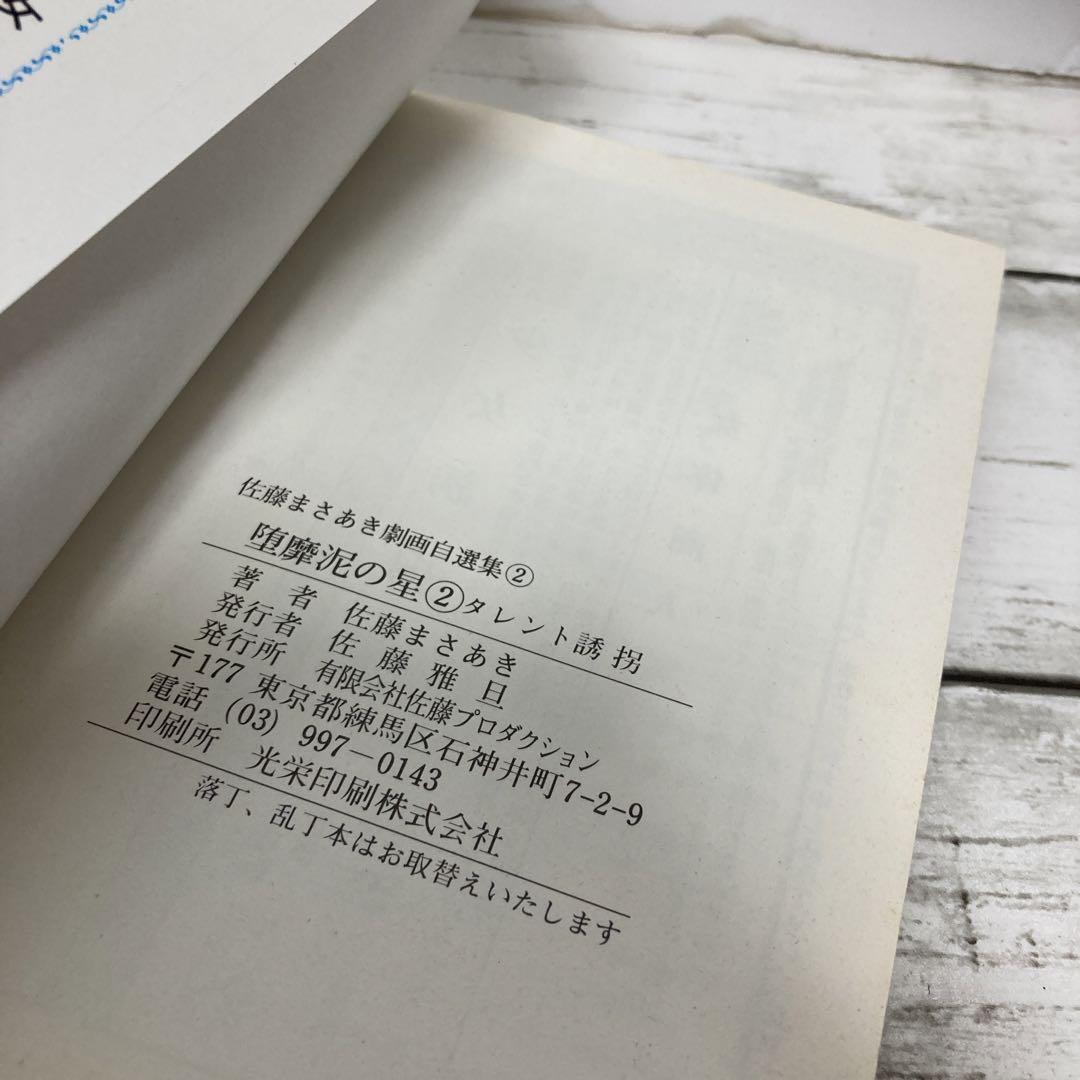 佐藤まさあき劇画自選集②
堕靡泥の星②タレント誘拐
著者 佐藤まさあき
発行者 佐藤雅旦
発行所 有限会社佐藤プロダクション
〒177 東京都練馬区石神井町7-2-9
電話 (03) 997-0143
印刷所 光栄印刷株式会社
落丁、乱丁本はお取替えいたします